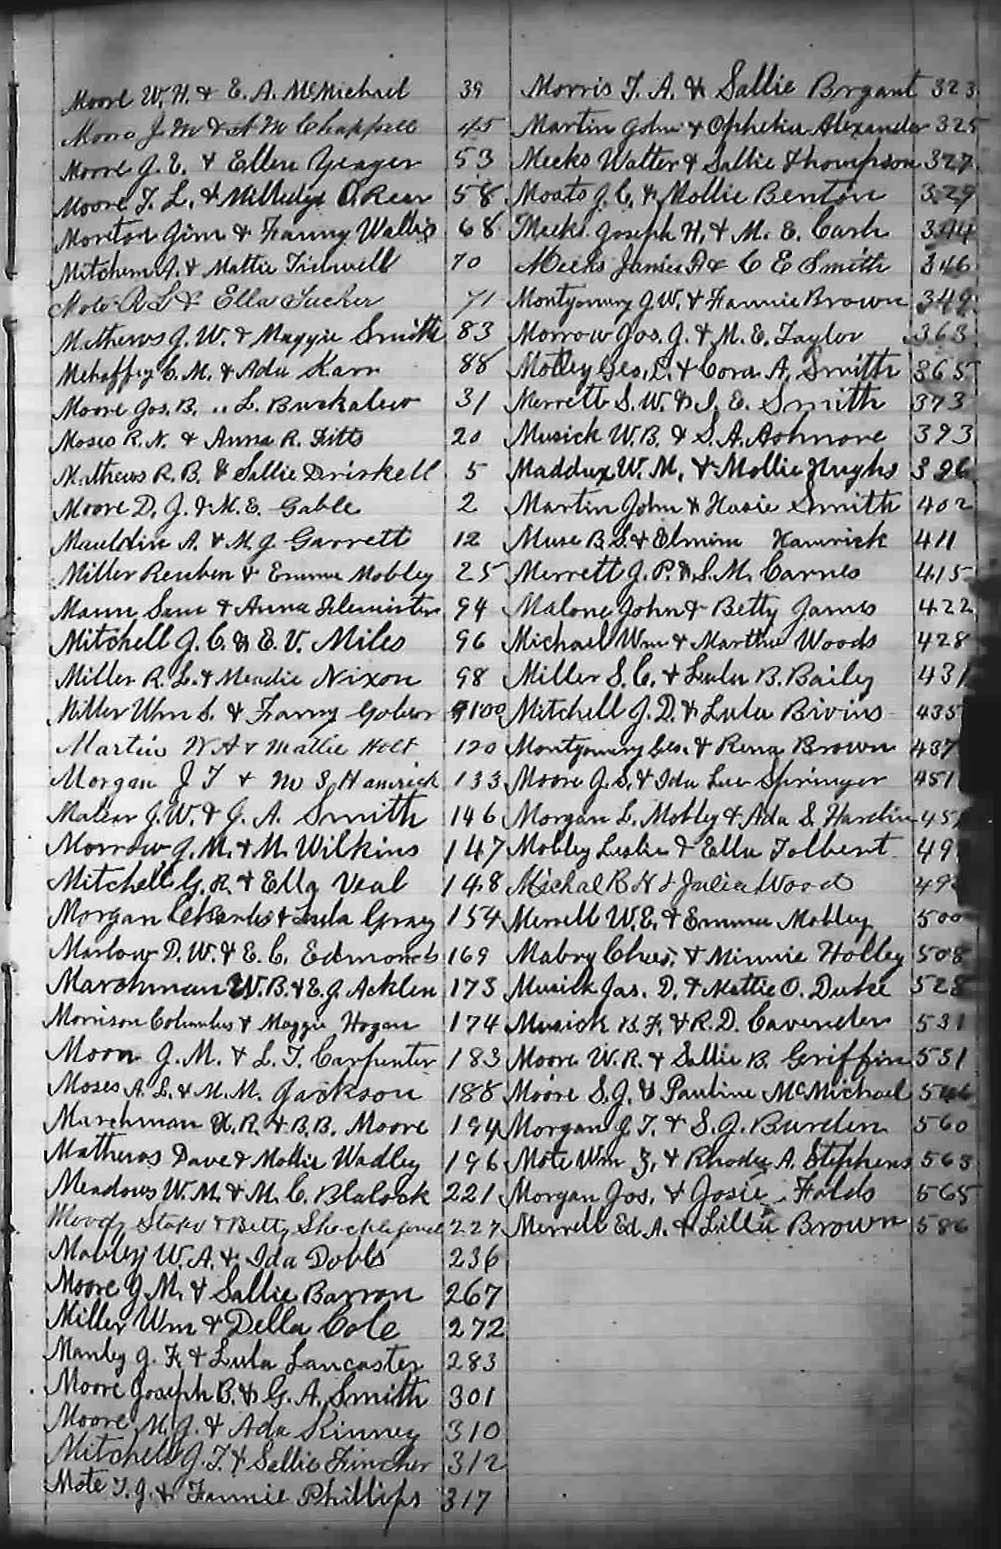 Moore W. H. & E. A. McMichael 39
Moore J M & A M Chappell 45
Moore J. E. & Ellen Yeager 53
Moore T. L. & Milledge O.Rear 58
Moreton Jim & Fanny Wallis 68
Mitchem A. & Mattie Tidwell 70
Mote R S & Ella Tucker 71
Mathews J. W. & Maggie Smith 83
Mehaffey C. M. & Ada Karr 88
Moore Jos. B. " L. Buckalew 31
Moses R. N. & Anna R. Fitts 20
Mathews R. B. & Sallie Driskell 5
Moore D. J. & M. E. Gable 2
Mauldin A. & M. J. Garrett 12
Miller Reuben & Emma Mobley 25
Mann Sam & Anna 94
Mitchell J. C. & E. V. Miles 96
Miller R. L. & Meadie Nixon 98
Miller Wm S. & Fanny 100
Martin W A & Mallie Holt 120
Morgan J T & M S Hamrick 133
J. W. & J. A. Smith 146
Morrow J. M. & M. Wilkins 147
Mitchell G. R. & Ella Veal 148
Morgan Charlie & Lula Gray 154
Marlow D. W. & E. C. Edmonds 169
Marchman W. B. & E. J. Acklen 173
Morrison Columbus & Maggie Hogan 174
Moon J. M. & L. T. Carpenter 183
Moses A. L. & M. M. Jackson 188
Marchman R. & B. B. Moore 194
Mathews Dave & Mollie Wadley 196
Meadows W. M. & M. C. Blalock 221
Moody & Betty Shackleford 227
Mobley W. A. & Ida Dobbs 236
Moore J. M. & Sallie Barron 267
Miller Wm & Della Cole 272
Manley J. F. & Lula Lancaster 283
Moore Joseph B. & G. A. Smith 301
Moore M. J. & Ada Kinney 310
Mitchell J. T. & Sallie Fincher 312
Mote T. J. & Fannie Phillips 317
Morris T. A. & Sallie Bryant 323
Martin John & Ophelia Alexander 325
Meeks Walter & Sallie Thompson 327
Moats J. C. & Mollie Benton 329
Meeks Joseph H. & M. E. Cash 344
Meeks James A & C E Smith 346
Montgomery J. W. & Fannie Brown 349
Morrow Jos. J. & M. E. Taylor 363
Motley Geo. L. & Cora A. Smith 365
Merrett S. W. & I. E. Smith 373
Musick W. B. & S. A. Ashmore 393
Maddux W. M. & Mollie Hughs 396
Martin John & Smith 402
Muse B. S. & Elmira Hamrick 411
Merrett J. P. & S. M. Carnes 415
Malone John & Betty James 422
Michael Wm & Martha Woods 428
Miller S. C. & Lula B. Bailey 431
Mitchell J. D. & Lula Bivins 435
Montgomery Geo. & Rena Brown 437
Moore J. S. & Ida Lee Springer 451
Morgan L. Mobley & Ada S. Hardin
Mobley Leslie & Ella Tolbert
Michal R N & Julia Wood
Merrell W. E. & Emma Mobley 500
Mabry Chas. & Minnie Holley 508
Musick Jas. D. & Mattie O. Duke 528
Musick B. F. & R. D. Cavender 531
Moore W. R. & Sallie B. Griffin 551
Moore S. J. & Pauline McMichael 546
Morgan J. T. & S. J. Burden 560
Mote Wm Z. & Rhody A. Stephens 563
Morgan Jos. & Josie Folds 565
Merrell Ed. A. & Lillie Brown 586